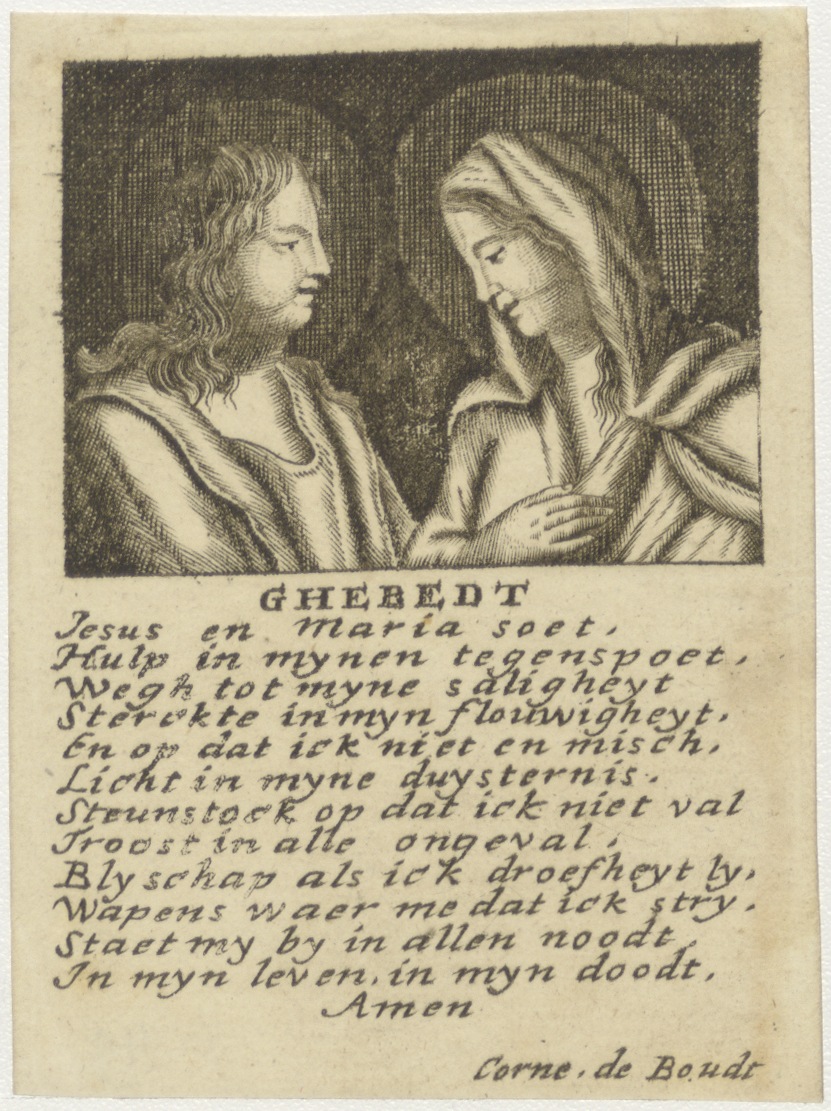 GHEBEDT
Jesus en Maria soet.
Hulp in mynen tegenspoet.
Wegh tot myne saligheyt
Sterckte in myn flouwigheyt.
En op dat ick niet en misch,
Licht in myne duysternis.
Steunstock op dat ick niet val
Troost in alle ongeval.
Blyschap als ick droefheyt ly,
Wapens waer me dat ick stry.
Staet my by in allen noodt,
In myn leven, in myn doodt.
Amen
Corne. de Boudt